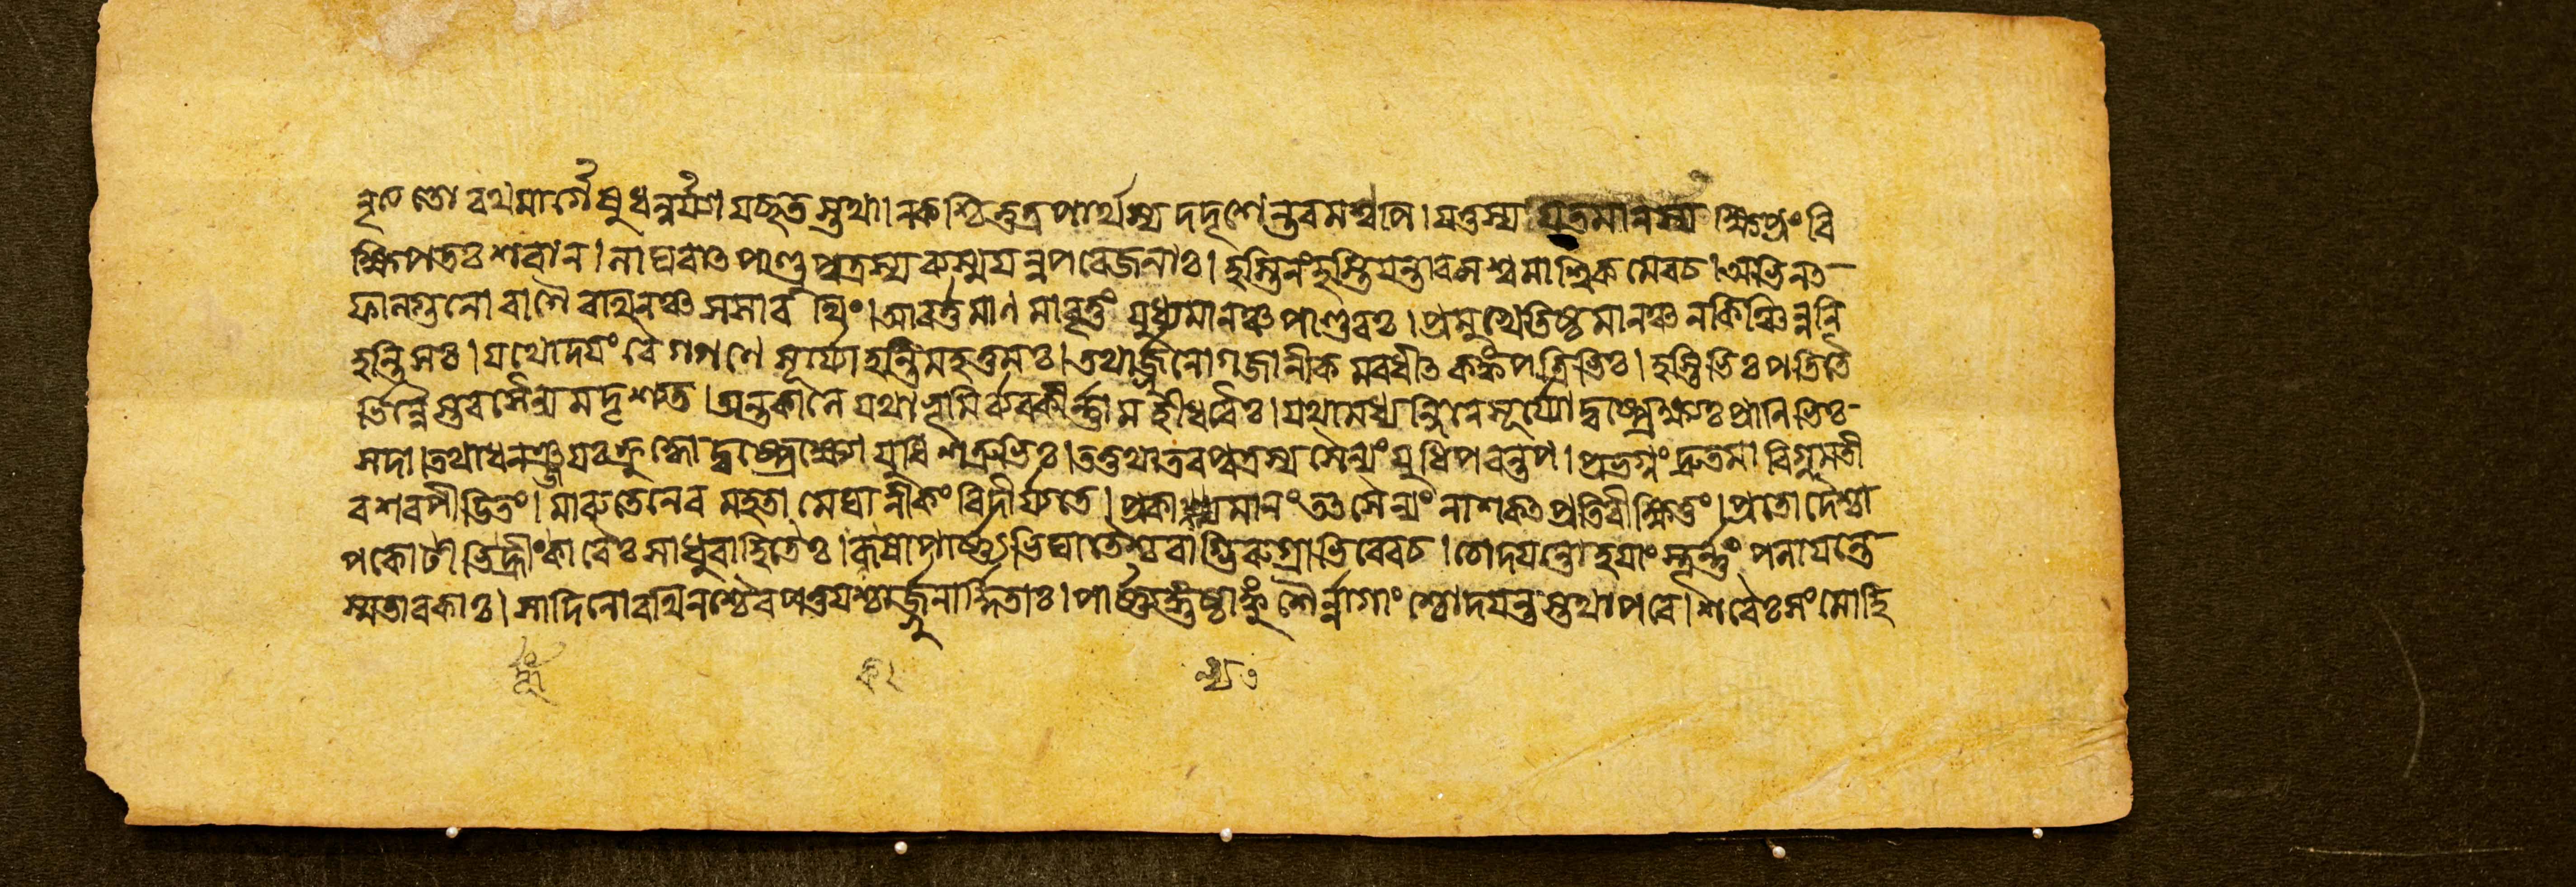 নৃত্যতো রথমার্গেষু ধনুর্ব্যাযচ্ছতস্তথা। ন কশ্চিত্তত্র পার্থস্য দদৃশেন্তরমণ্বপি। যত্তস্য যতমানস্য ক্ষিপ্রং বি
ক্ষিপতঃ শরান। লাঘবাত পাণ্ডুপুত্রস্য ব্যস্ময়ন্ত পরেজনাঃ। হস্তিনং হস্তিযন্তারমশ্বমাশ্বিকমেবচ। অভিনত
ফাল্গুনো বাণৈ রথিনঞ্চ সসারথিং। আবর্ত্তমানমাবৃত্তং যুধ্যমানঞ্চ পাণ্ডবঃ। প্রমুখে তিষ্ঠমানঞ্চ ন কিঞ্চিন্ন নি
হন্তি সঃ। যথোদযং বৈ গগণে সূর্য্যো হন্তি মহত্তমঃ। তথার্জ্জুনো গজানীকমবধীত কঙ্কপত্রিভিঃ। হস্তিভিঃ পতিতৈ
র্ভিন্নৈস্তব সৈন্যমদৃশ্যত। অন্তকালে যথা ভূমির্ব্বিকীর্ণ্ণা মহীধরৈঃ। যথা মধ্যন্দিনে সূর্য্যো দুষ্প্রেক্ষ্যঃ প্রাণিভিঃ
সদা। তথা ধনঞ্জযঃ ক্রুদ্ধো দুষ্প্রেক্ষ্যো যুধি শত্রুভিঃ। তত্তথা তব পুত্রস্য সৈন্যং যুধি পরন্তপ। প্রভগ্নং দ্রুতমাবিগ্নমতী
ব শরপীডিতং। মারুতেনেব মহতা মেঘানীকং বিদীর্য্যতে। প্রকাল্যমানং তত সৈন্যং নাশকত প্রতিবীক্ষিতুং। প্রতোদৈশ্চা
পকোটীভির্হুংকারৈঃ সাধুবাহিতৈঃ। কষাপার্ষ্ণ্যভিঘাতৈশ্চ বাগ্ভিরুগ্রাভিরেবচ। চোদযন্তো হযাংস্তূর্ণ্ণং পলাযন্তে
স্ম তাবকাঃ। সাদিনো রথিনশ্চৈব পত্তযশ্চার্জ্জুনার্দ্দিতাঃ। পার্ষ্ণ্যঙ্গুষ্ঠাঙ্কুশৈর্ন্নাগাংশ্চোদযন্তস্তথাপরে। শরৈঃ সংমোহি